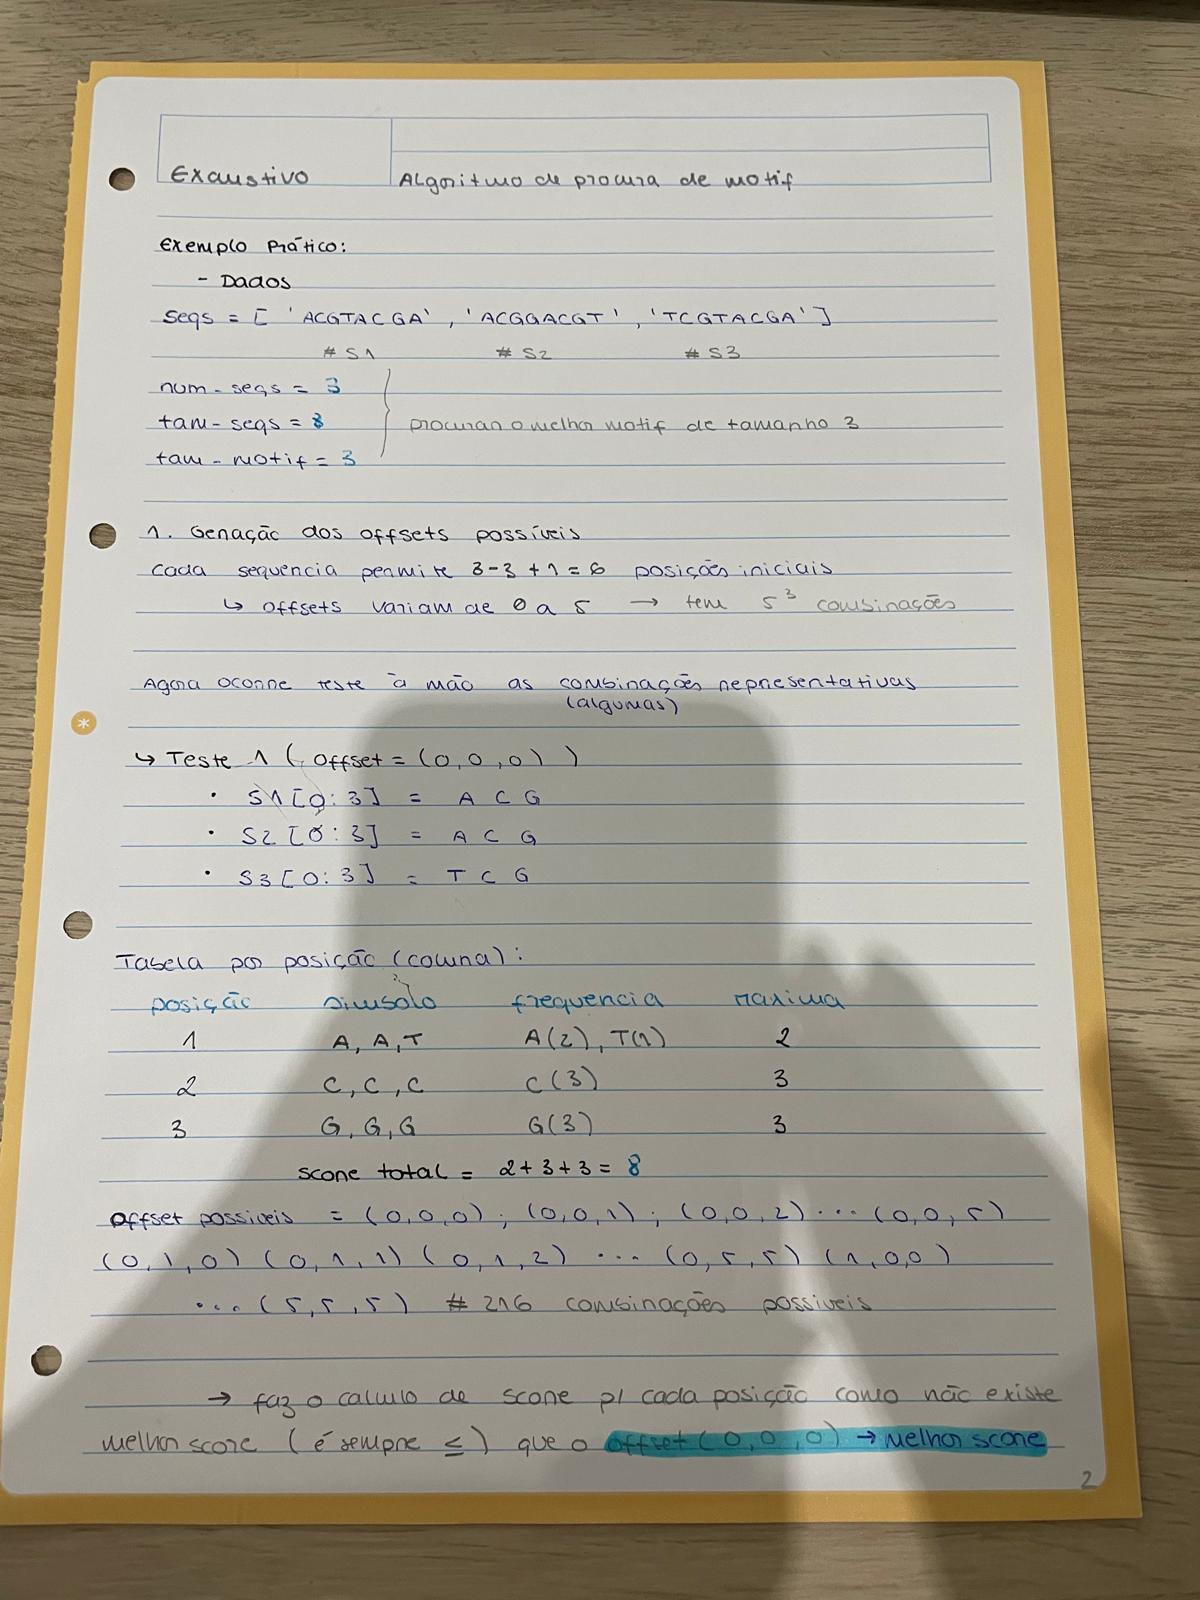 Exaustivo
Algoritmo de procura de motif
Exemplo Prático:
- Dados
seqs = [ 'ACGTACGA' , 'ACGGACGT' , 'TCGTACGA' ]
# S1 # S2 # S3
num-seqs = 3
tam-seqs = 8 procurar o melhor motif de tamanho 3
tam-motif = 3
1. Geração dos offsets possíveis
cada sequencia permite 8-3+1=6 posições iniciais
↳ offsets variam de 0 a 5 → tem 5³ combinações
Agora ocorre teste à mão as combinações representativas
(algumas)
↳ Teste 1 ( offset = (0,0,0) )
• S1[0:3] = A C G
• S2[0:3] = A C G
• S3[0:3] = T C G
Tabela por posição (coluna):
posição simbolo frequencia maxima
1 A, A, T A(2), T(1) 2
2 C, C, C C(3) 3
3 G, G, G G(3) 3
score total = 2+3+3 = 8
offset possiveis = (0,0,0) ; (0,0,1) ; (0,0,2) ... (0,0,5)
(0,1,0) (0,1,1) (0,1,2) ... (0,5,5) (1,0,0)
... (5,5,5) # 216 combinações possiveis
→ faz o calculo de score p/ cada posição como não existe
melhor score (é sempre ≤) que o offset(0,0,0) → melhor score
2